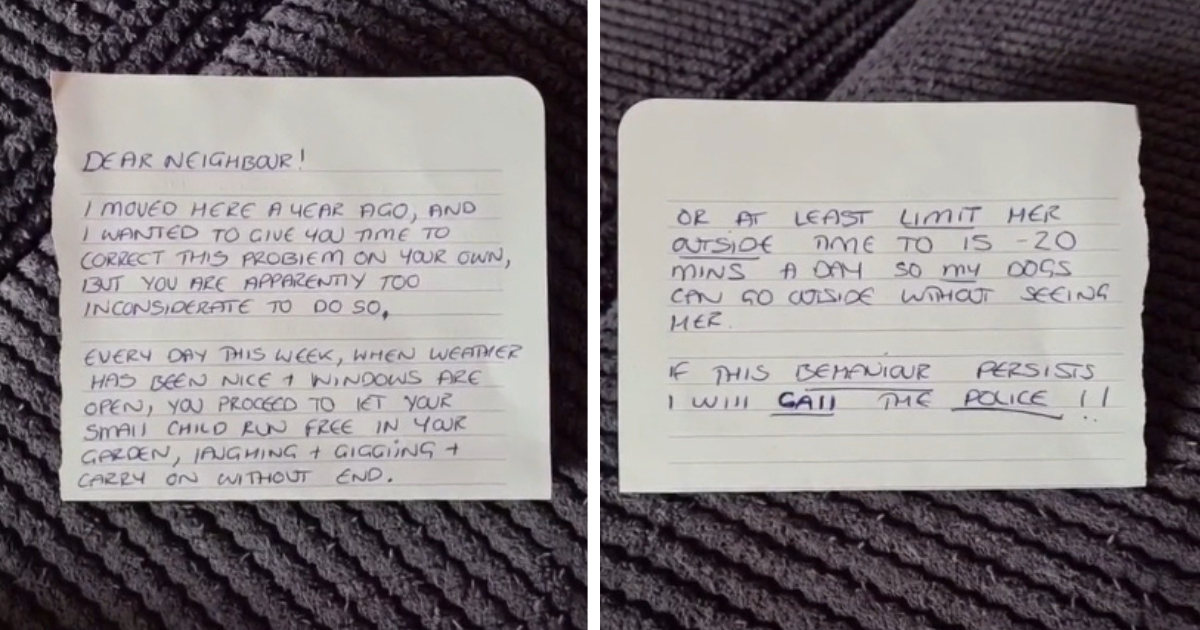 DEAR NEIGHBOUR!
I MOVED HERE A YEAR AGO, AND
I WANTED TO GIVE YOU TIME TO
CORRECT THIS PROBlEM ON YOUR OWN,
BUT YOU ARE APPARENTLY TOO
INCONSIDERATE TO DO SO.
EVERY DAY THIS WEEK, WHEN WEATHER
HAS BEEN NICE + WINDOWS ARE
OPEN, YOU PROCEED TO LET YOUR
SMAll CHILD RUN FREE IN YOUR
GARDEN, lAUGHING + GIGGliNG +
CARRY ON WITHOUT END.
OR AT LEAST LIMIT HER
OUTSIDE TIME TO 15 -20
MINS A DAY SO MY DOGS
CAN GO OUTSIDE WITHOUT SEEING
HER.
IF THIS BEHAVIOUR PERSISTS
I WIll CAll THE POLICE !!